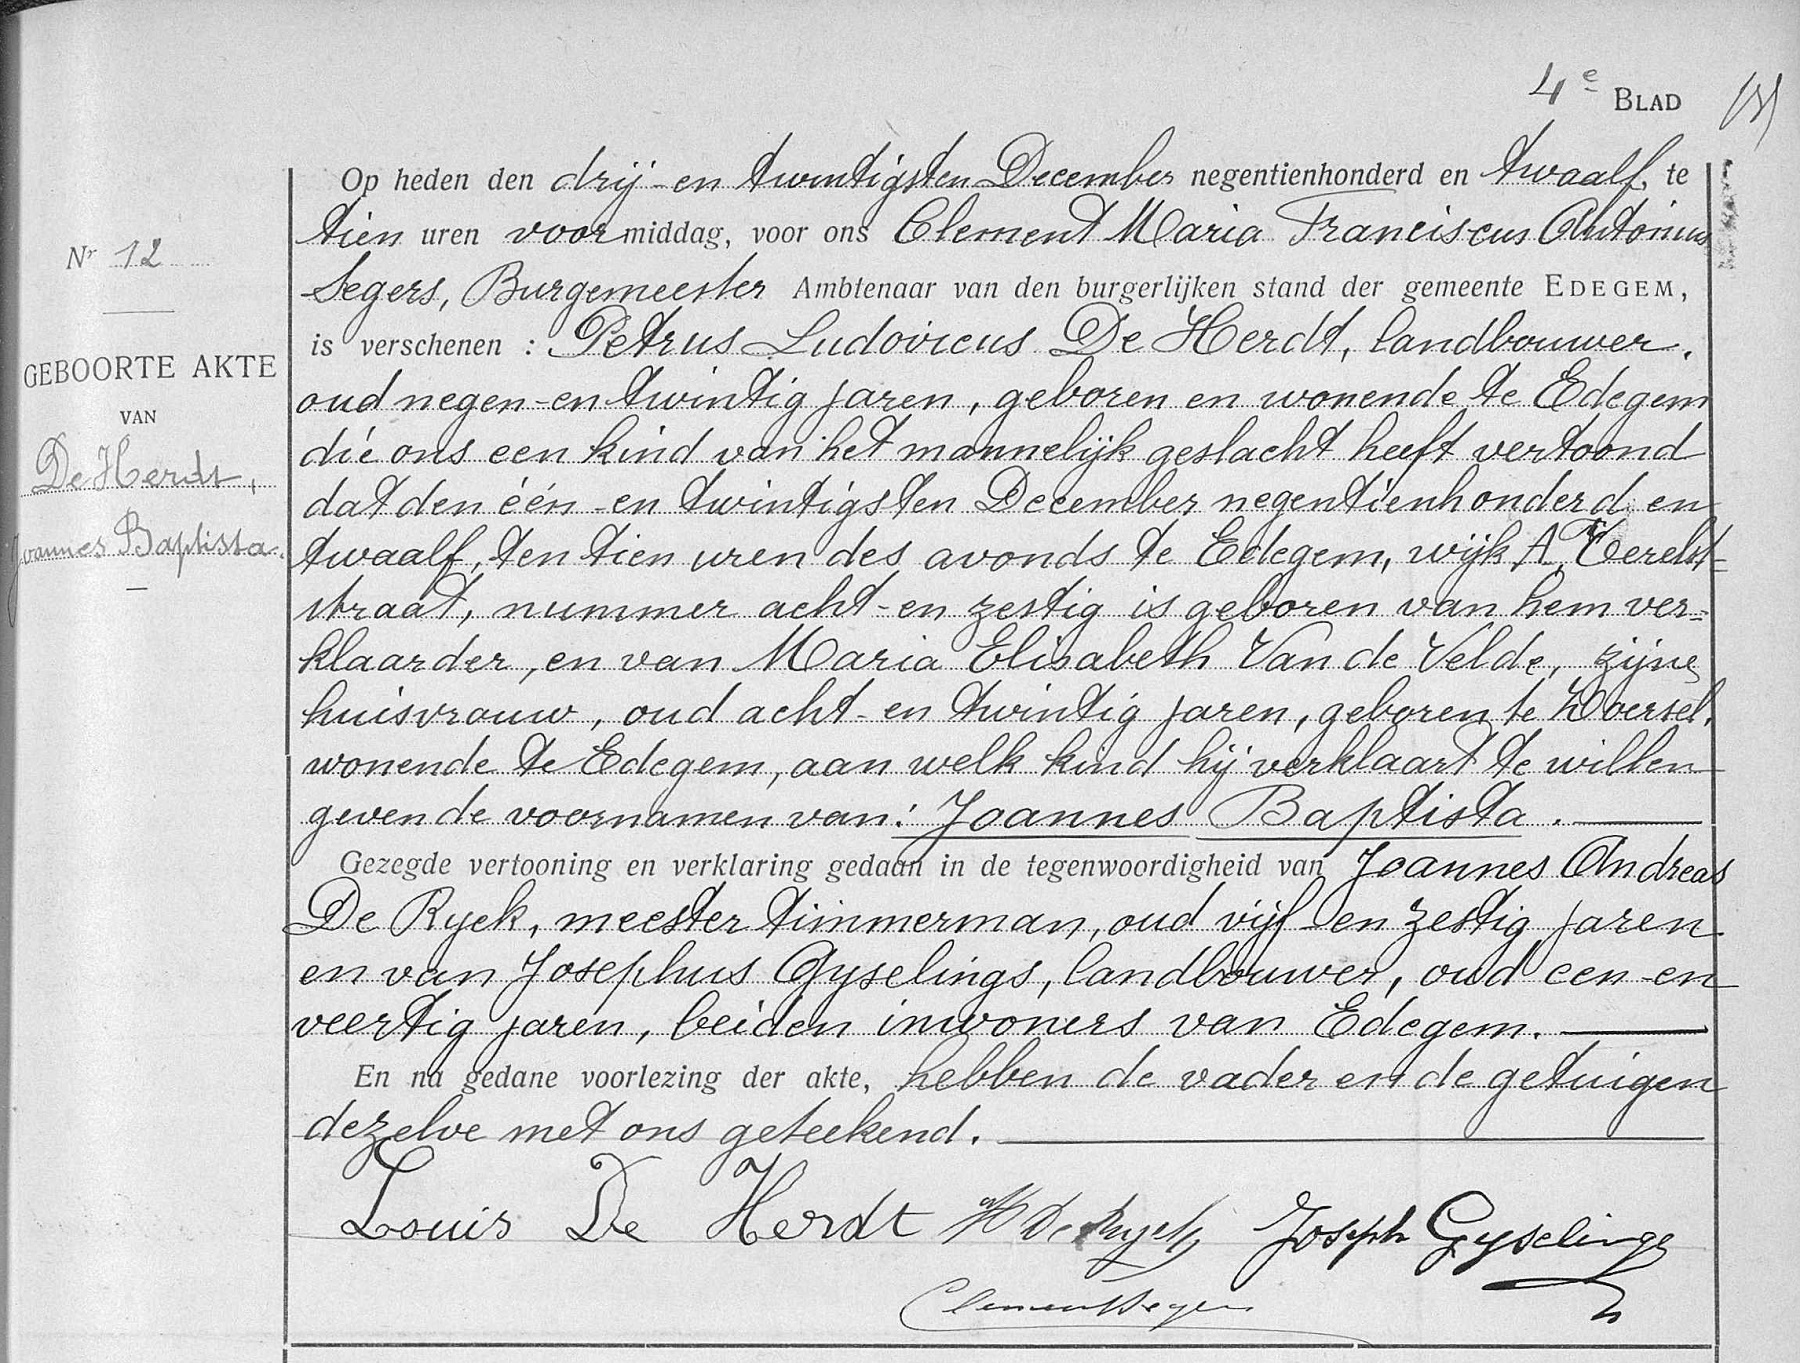 4e BLAD
Op heden den drij-en twintigsten December negentienhonderd en twaalf, te
tien uren voormiddag, voor ons Clement Maria Franciscus Antonius
Segers, Burgemeester Ambtenaar van den burgerlijken stand der gemeente EDEGEM,
is verschenen : Petrus Ludovicus De Herdt, landbouwer,
oud negen-en twintig jaren, geboren en wonende te Edegem
die ons een kind van het mannelijk geslacht heeft vertoond
dat den één-en twintigsten December negentienhonderd en
twaalf, ten tien uren des avonds te Edegem, wijk A,
straat, nummer acht-en zestig is geboren van hem ver=
klaarder, en van Maria Elisabeth Van de Velde, zijne
huisvrouw, oud acht-en twintig jaren, geboren te
wonende te Edegem, aan welk kind hij verklaart te willen
geven de voornamen van: Joannes Baptista.
Gezegde vertooning en verklaring gedaan in de tegenwoordigheid van Joannes Andreas
De Ryck, meester timmerman, oud vijf-en zestig jaren
en van Josephus Gyselings, landbouwer, oud een-en
veertig jaren, beiden inwoners van Edegem.
En na gedane voorlezing der akte, hebben de vader en de getuigen
dezelve met ons geteekend.
Louis De Herdt De Ryck Joseph Gyselings
Clement Segers
Nr 12
GEBOORTE AKTE
VAN
De Herdt,
Joannes Baptista.